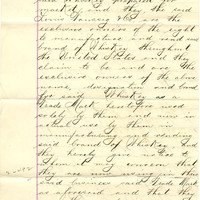 market and they the said
are the
exclusive owners of the right
to manufacture and vend said
brand of Whiskey throughout
the United States and the
claim to be and are the
exclusive owners of the above
name, designation and brand
for said Whiskey as a
Trade Mark heretofore used
solely by them and now in
actual use by them in
manufacturing and vending
said brand of Whiskey. And
they hereby give notice to
whom it may concern that
they are now using in their
said business said Trade Mark
as aforesaid and that they